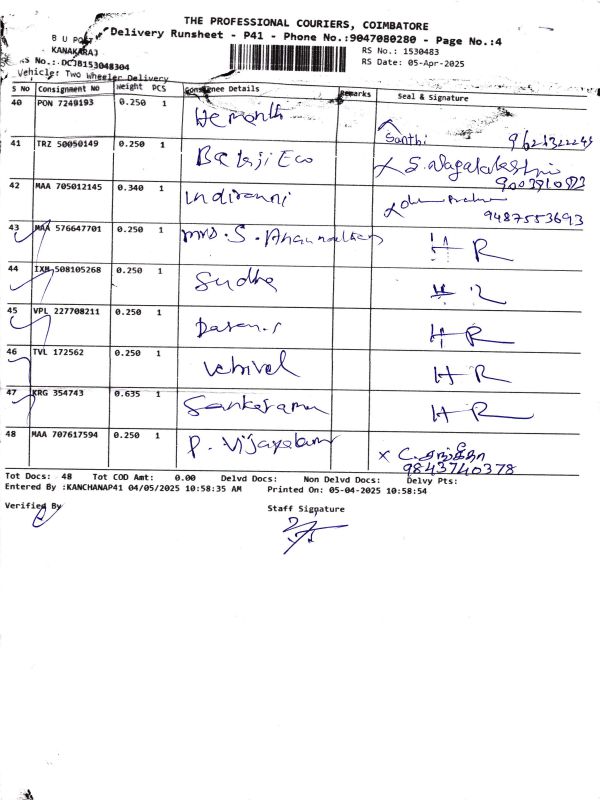 THE PROFESSIONAL COURIERS, COIMBATORE
Delivery Runsheet - P41 - Phone No.:9047080280 - Page No.:4
B U
KANAKARAJ
RS No.: 1530483
RS No.:.DCJB153048304
RS Date: 05-Apr-2025
Vehicle: Two Wheeler Delivery
S No Consignment NO Weight PCS Consignee Details Remarks Seal & Signature
40 PON 7249193 0.250 1 Hemanth Santhi
41 TRZ 50050149 0.250 1 Balaji Eco S. Nagalakshmi
42 MAA 705012145 0.340 1 Indirani 9487553693
43 MAA 576647701 0.250 1 Mrs. S. H R
44 IXM 508105268 0.250 1 Sudha H R
45 VPL 227708211 0.250 1 H R
46 TVL 172562 0.250 1 Vetrivel H R
47 KRG 354743 0.635 1 H R
48 MAA 707617594 0.250 1 P. x C.
9843740378
Tot Docs: 48 Tot COD Amt: 0.00 Delvd Docs: Non Delvd Docs: Delvy Pts:
Entered By :KANCHANAP41 04/05/2025 10:58:35 AM Printed On: 05-04-2025 10:58:54
Verified By Staff Signature